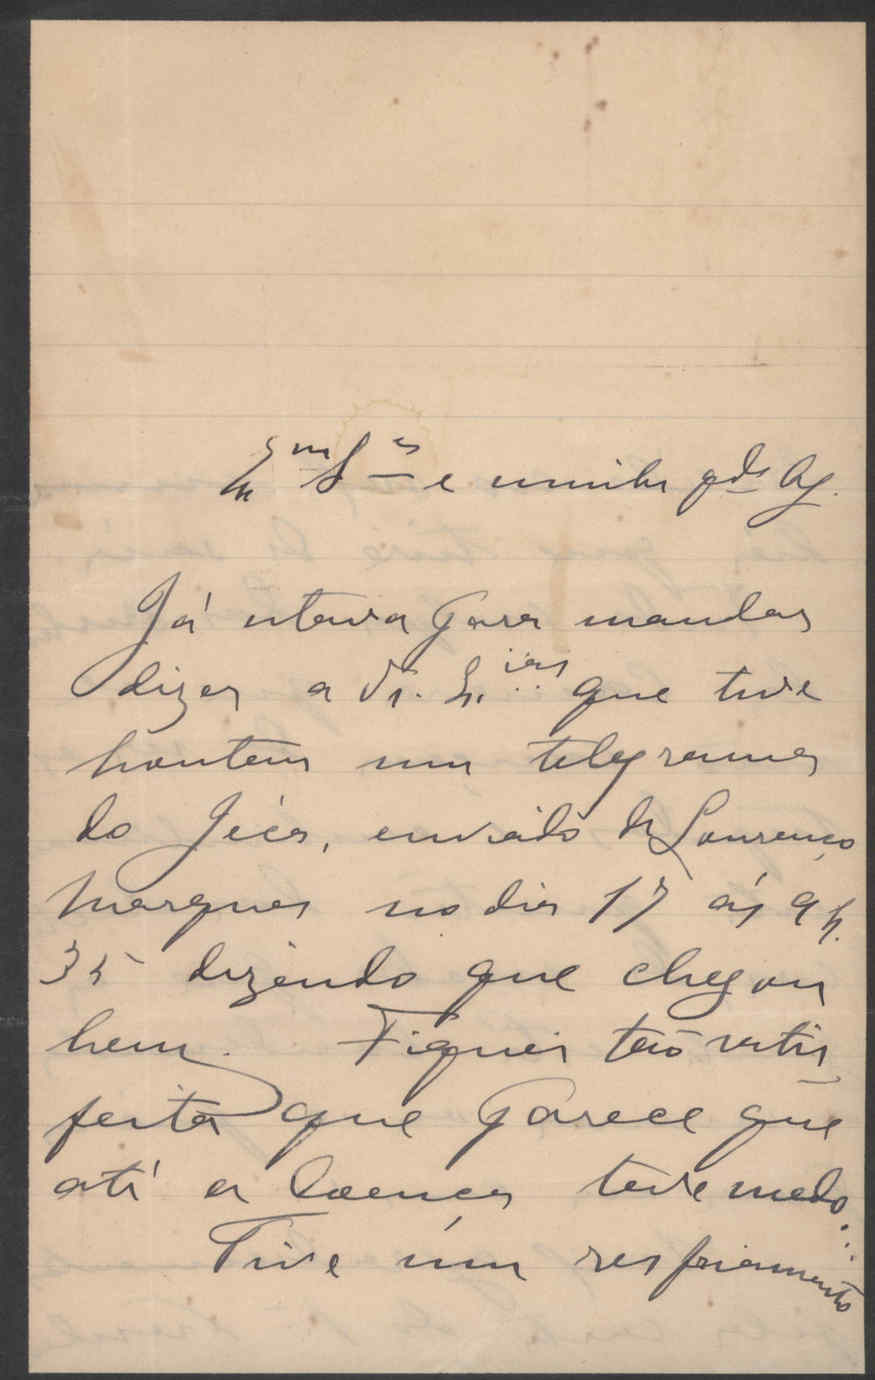 Exm Sra e minha qda Ag.
Já estava para mandar
dizer a V. Exias que tive
hontem um telegrama
do Jéca, enviado de Lourenço
Marques no dia 17 ás 9 h.
35 dizendo que chegou
bem. Fiquei tão satis
feita que parece que
até a doença teve medo...
Tive um resfriamento